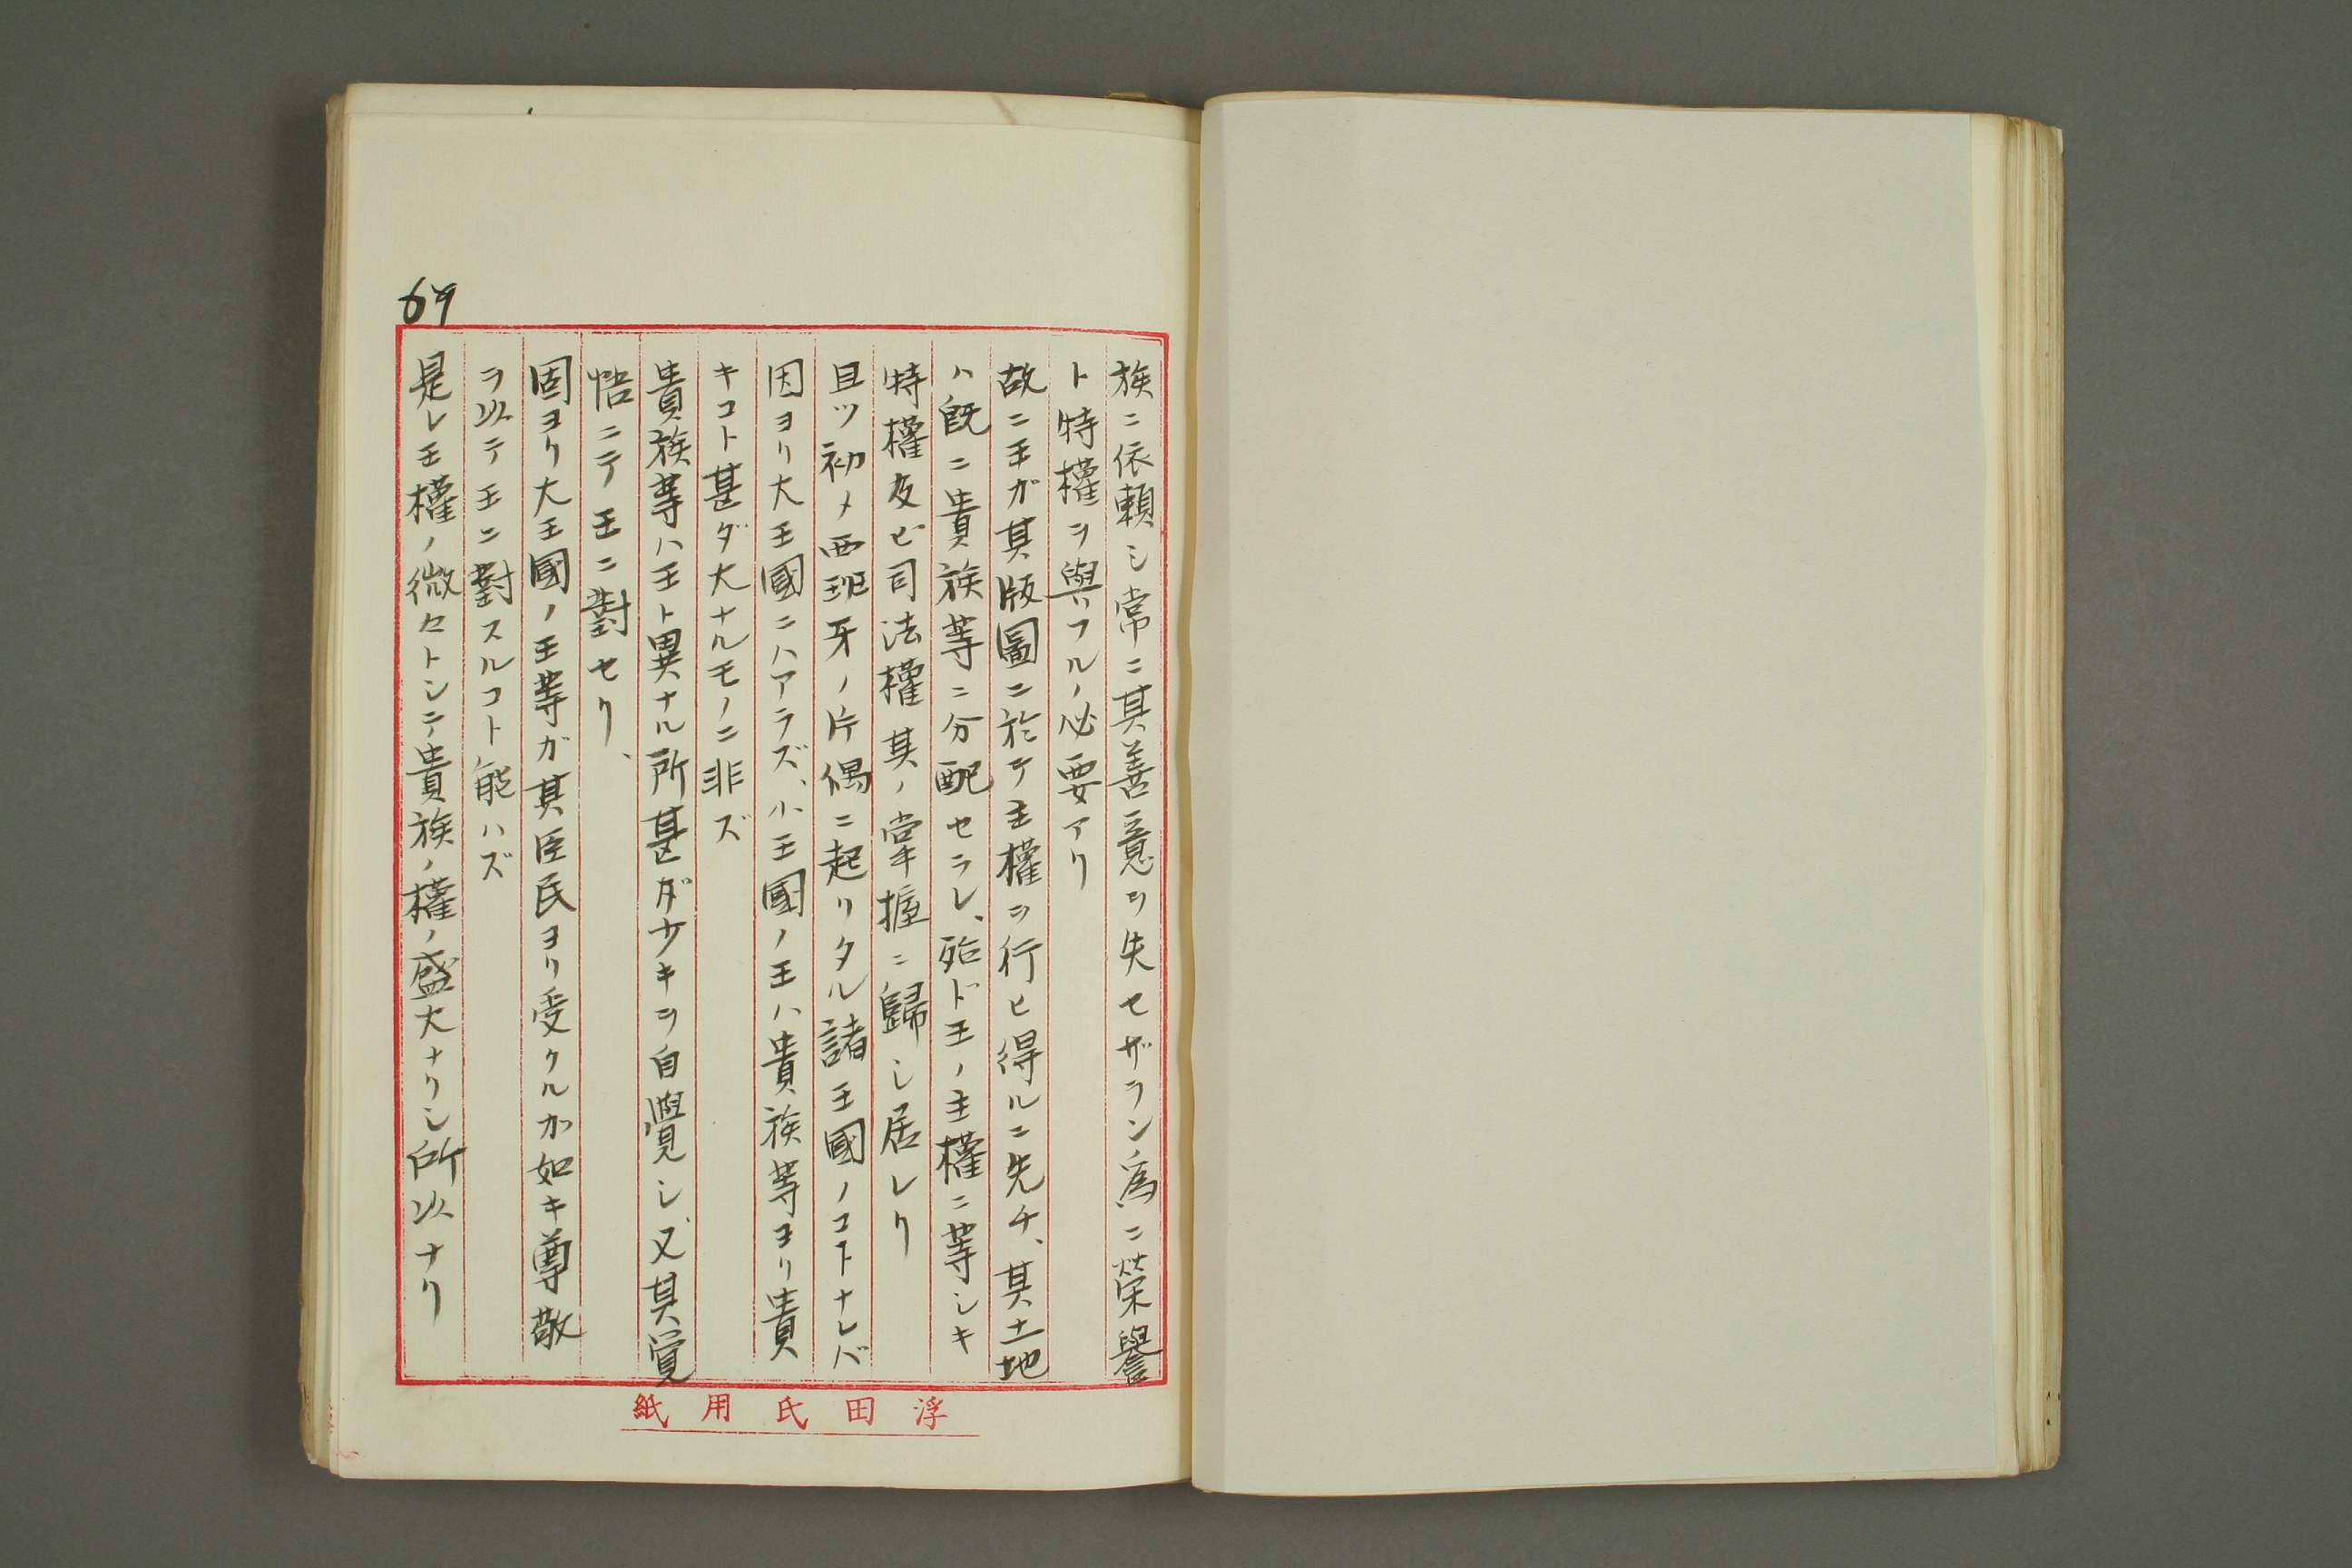 69
族ニ依頼シ常ニ其善意ヲ失セザラン為ニ榮譽
ト特權ヲ與フルノ必要アリ
故ニ王ガ其版圖ニ於テ主權ヲ行ヒ得ルニ先チ、其土地
ハ既ニ貴族等ニ分配セラレ、殆ド王ノ主權ニ等シキ
特權及ビ司法權其ノ掌握ニ歸シ居レリ
且ツ初メ西班牙ノ片偶ニ起リタル諸王國ノコトナレバ
因ヨリ大王國ニハアラズ、小王國ノ王ハ貴族等ヨリ貴
キコト甚ダ大ナルモノニ非ズ
貴族等ハ王ト異ナル所甚ダ少キヲ自覺シ又其覚
悟ニテ王ニ對セリ、
固ヨリ大王國ノ王等ガ其臣民ヨリ受クルガ如キ尊敬
ヲ以テ王ニ對スルコト能ハズ
是レ王權ノ微々トシテ貴族ノ權ノ盛大ナリシ所以ナリ
浮田氏用紙